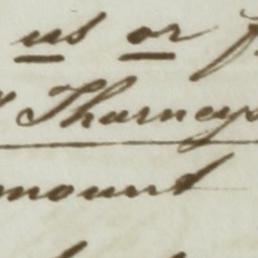 us or
Thurneys
mount